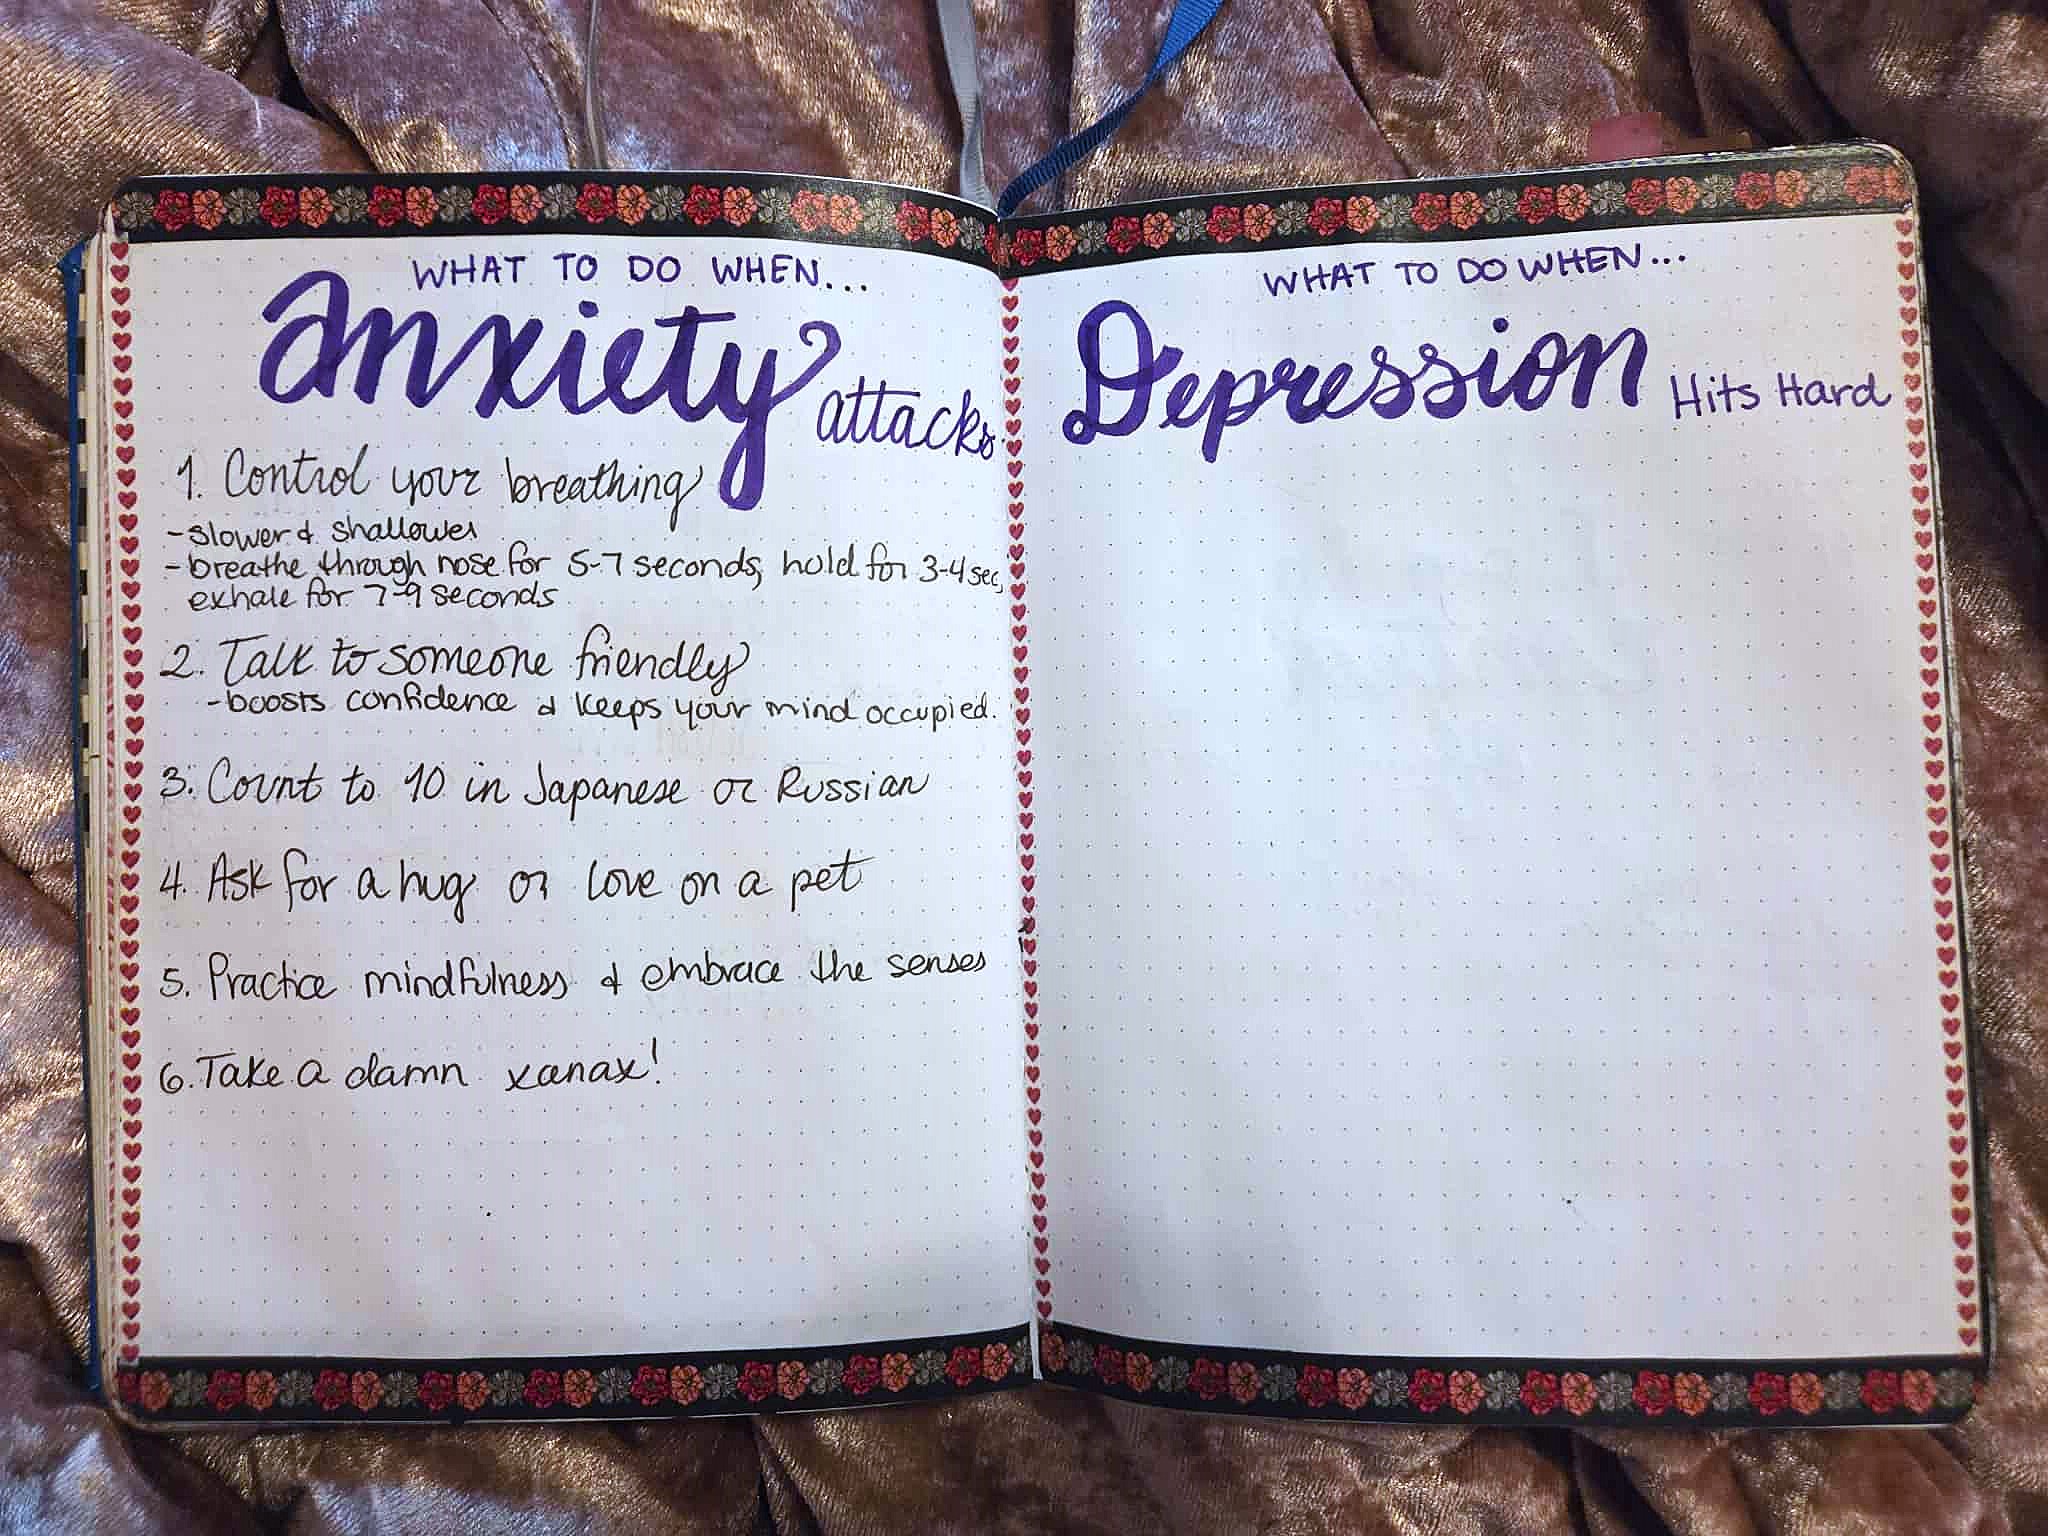 WHAT TO DO WHEN...
Anxiety attacks
1. Control your breathing
-slower & shallower
-breathe through nose for 5-7 seconds, hold for 3-4 sec,
exhale for 7-9 seconds
2. Talk to someone friendly
-boosts confidence & keeps your mind occupied.
3. Count to 10 in Japanese or Russian
4. Ask for a hug or love on a pet
5. Practice mindfulness & embrace the senses
6. Take a damn xanax!
WHAT TO DO WHEN...
Depression Hits Hard